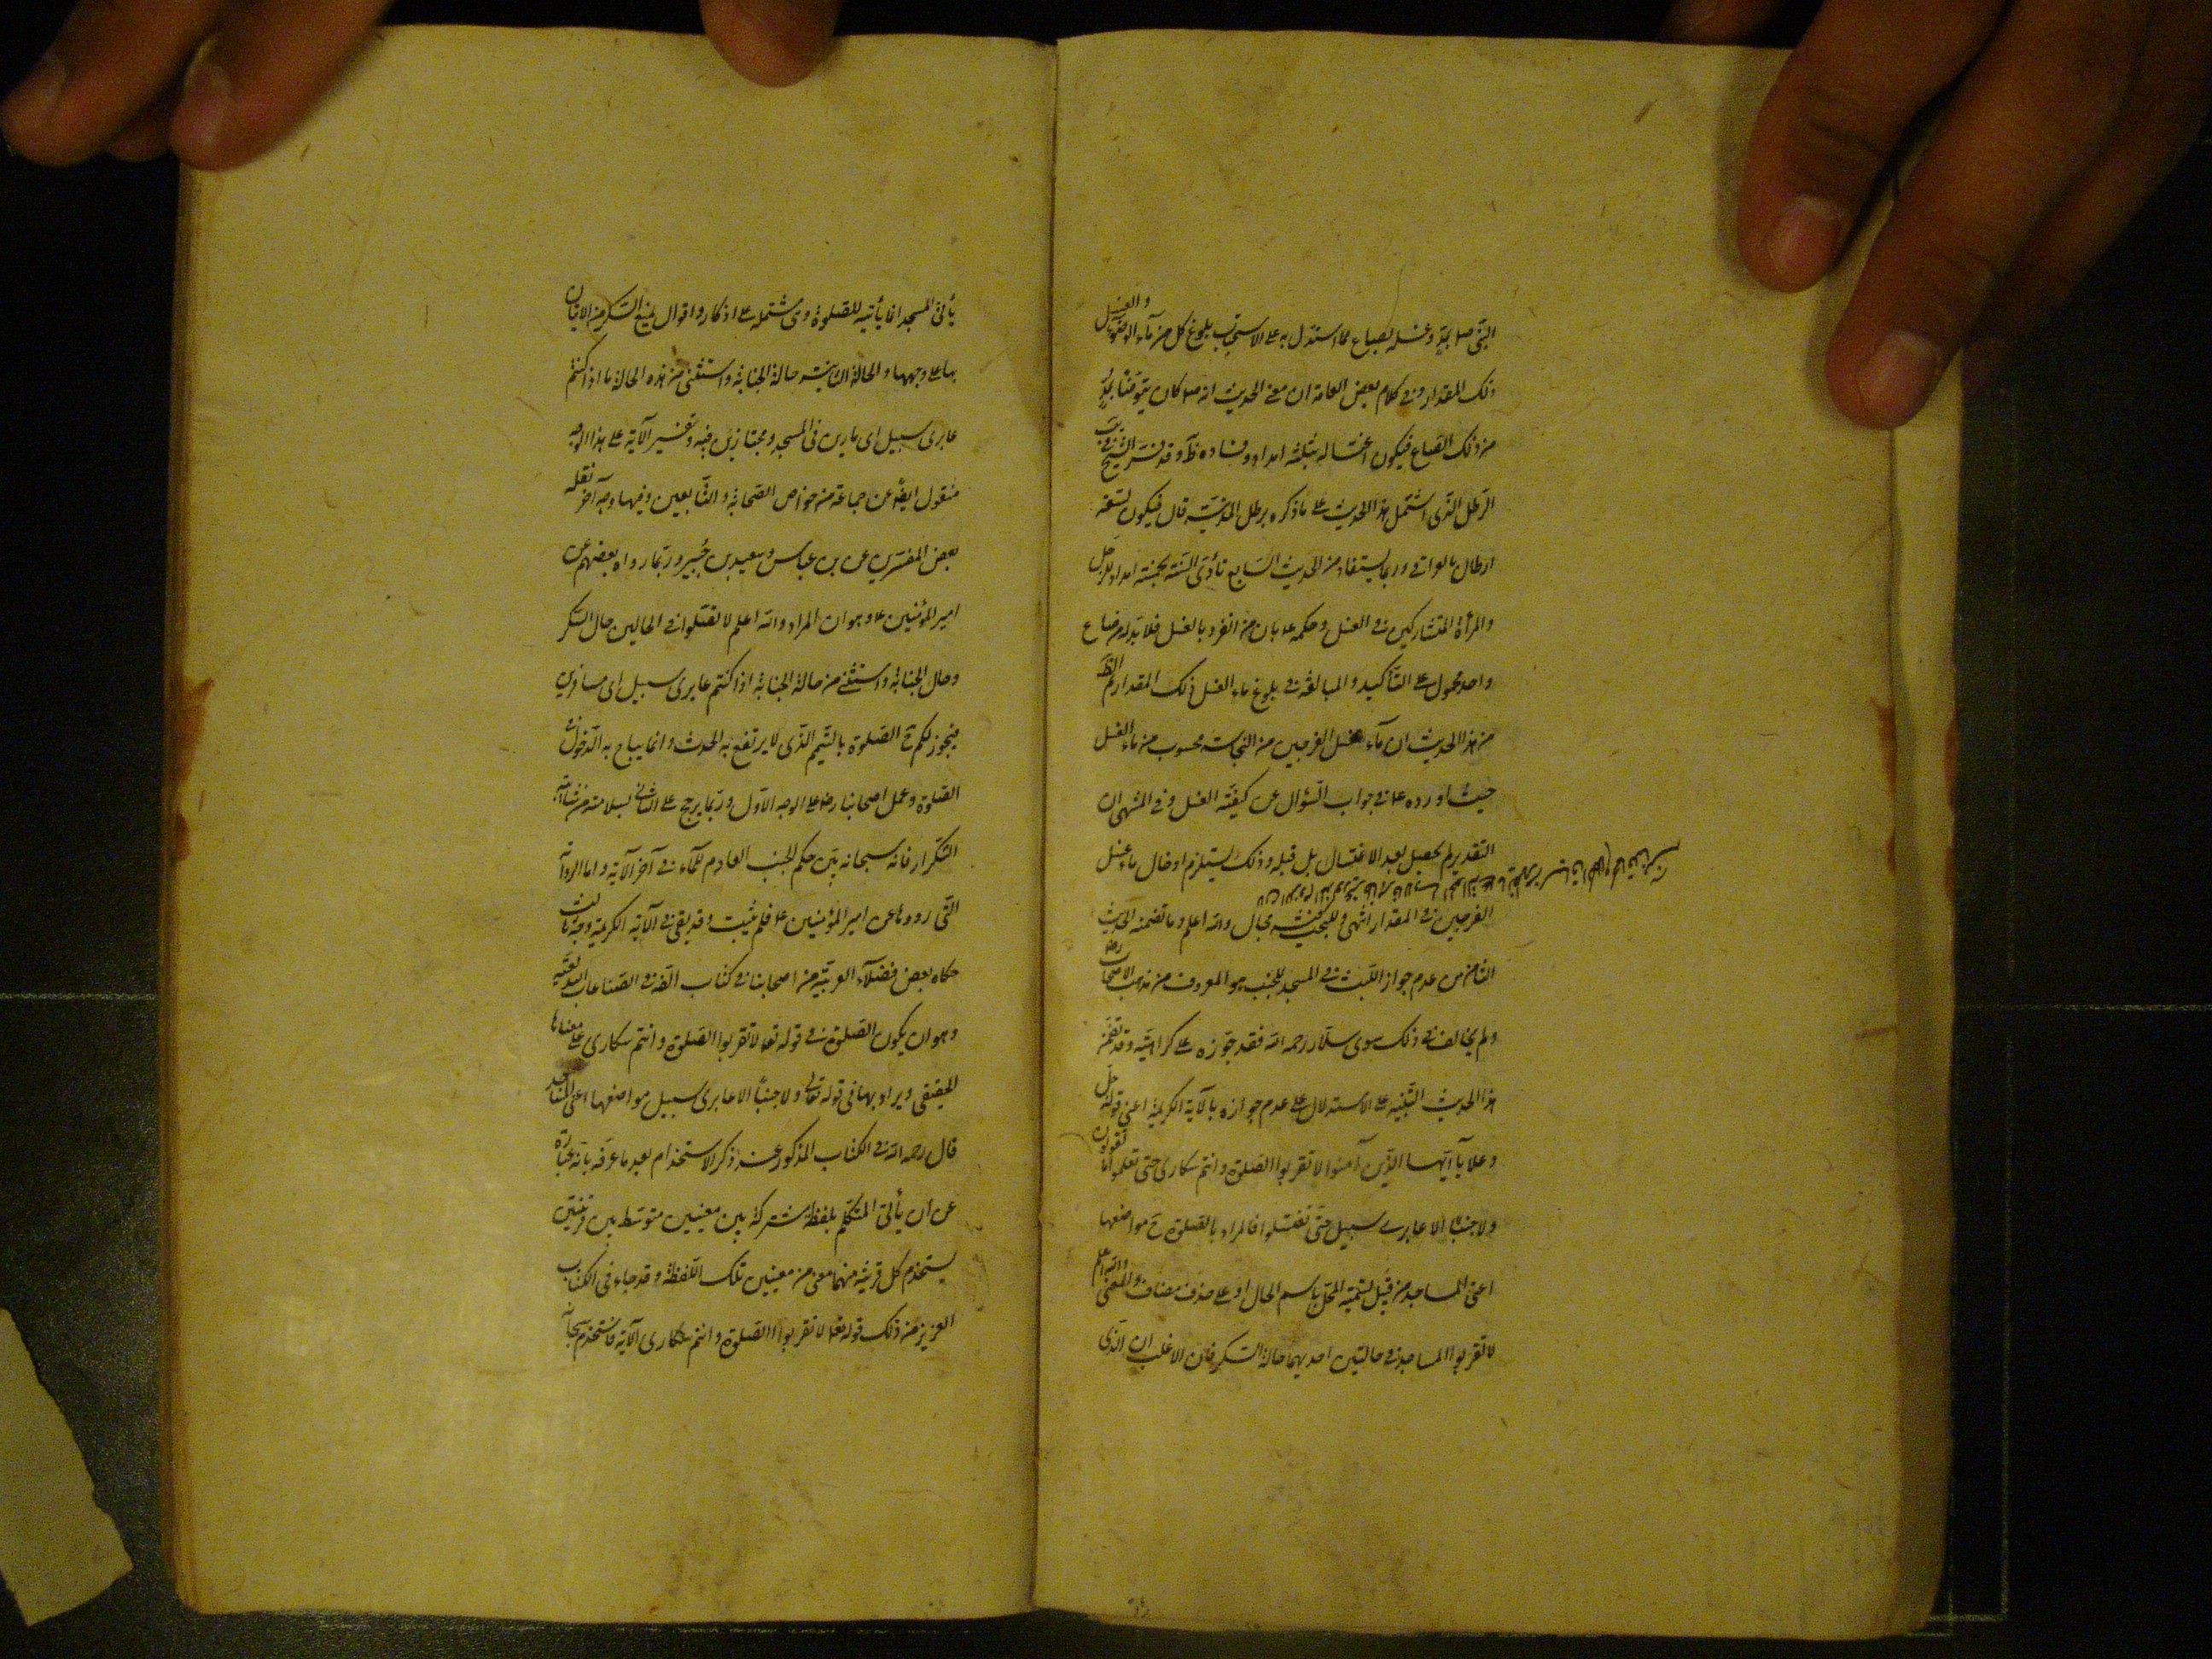 النبي ص بمد وغسله بصاع مما استدل به على الاستحباب بلوغ كل من ماء الوضوء والغسل
ذلك المقدار وفي كلام بعض العامة ان معنى الحديث انه ص كان يتوضأ بمد
من ذلك الصاع فيكون اغتساله بثلثة امداد وفساده ظ وقد فسر الشيخ في يب
الرطل الذي اشتمل هذا الحديث على ما ذكره برطل المدينة قال فيكون تسعة
ارطال بالعراقي وربما يستفاد من الحديث السابع تأدى السنة بخمسة امداد للرجل
والمرأة المتشاركين في الغسل وحكمه ع بان من انفرد بالغسل فلا بد له من صاع
واحد محمول على التأكيد والمبالغة في بلوغ ماء الغسل ذلك المقدار ثم الظ
من هذا الحديث ان ماء غسل الفرجين من النجاسة محسوب من ماء الغسل
حيث اورده ع في جواب السؤال عن كيفية الغسل وفي المنتهى ان
التقدير لم يحصل بعد الاغتسال بل قبله وذلك يستلزم ادخال ماء غسل
الفرجين في المقدار انتهى وللبحث فيه مجال والله اعلم وما تضمنه الحديث
الثامن من عدم جواز اللبث في المسجد للجنب هو المعروف من مذهب الاصحاب رض
ولم يخالف في ذلك سوى سلار رحمه الله فقد جوزه على كراهية وقد تضمن
هذا الحديث التنبيه على الاستدلال على عدم جوازه بالآية الكريمة اعني قوله جل
وعلا يا ايها الذين آمنوا لا تقربوا الصلوة وانتم سكارى حتى تعلموا ما تقولون
ولا جنبا الا عابرى سبيل حتى تغتسلوا فالمراد بالصلوة ح مواضعها
اعنى المساجد من قبيل تسمية المحل باسم الحال او على حذف مضاف والمعنى والله اعلم
لا تقربوا المساجد في حالتين احديهما حالة السكر فان الاغلب ان الذى
يأتى المسجد انما يأتيه للصلوة وهى مشتملة على اذكار واقوال يمنع السكر من الاتيان
بها على وجهها والحالة الثانية حالة الجنابة واستثنى من هذه الحالة ما اذا كنتم
عابرى سبيل اى مارين فى المسجد ومجتازين فيه وتفسير الآية على هذا الوجه
منقول ايضا عن جماعة من خواص الصحابة والتابعين وفيها وجه آخر نقله
بعض المفسرين عن بن عباس وسعيد بن جبير وربما رواه بعضهم عن
امير المؤمنين ع وهو ان المراد والله اعلم لا تصلوا في الحالين حال السكر
وحال الجنابة واستثنى من حالة الجنابة اذا كنتم عابرى سبيل اى مسافرين
فيجوز لكم ح الصلوة بالتيمم الذى لا يرتفع به الحدث وانما يباح به الدخول في
الصلوة وعمل اصحابنا رض على الوجه الاول وربما يرجح على الثانى بسلامته من شائبة
التكرار فانه سبحانه بين حكم الجنب العادم للماء في آخر الآية واما الرواية
التى رووها عن امير المؤمنين ع فلم يثبت وقد بقى في الآية الكريمة وجه ثالث
حكاه بعض فضلاء العربية من اصحابنا في كتاب الفه في الصناعات البديعية
وهو ان يكون الصلوة في قوله تعا لا تقربوا الصلوة وانتم سكارى على معناها
الحقيقى ويراد بها فى قوله تعالى ولا جنبا الا عابرى سبيل مواضعها اعنى المساجد
قال رحمه الله في الكتاب المذكور عند ذكر الاستخدام بعد ما عرفه بانه عبارة
عن ان يأتى المتكلم بلفظة مشتركة بين معنيين متوسطة بين قرينتين
يستخدم كل قرينة منهما معنى من معنيين تلك اللفظة وقد جاء فى الكتاب
العزيز من ذلك قوله تعا لا تقربوا الصلوة وانتم سكارى الآية فاستخدم سبحانه